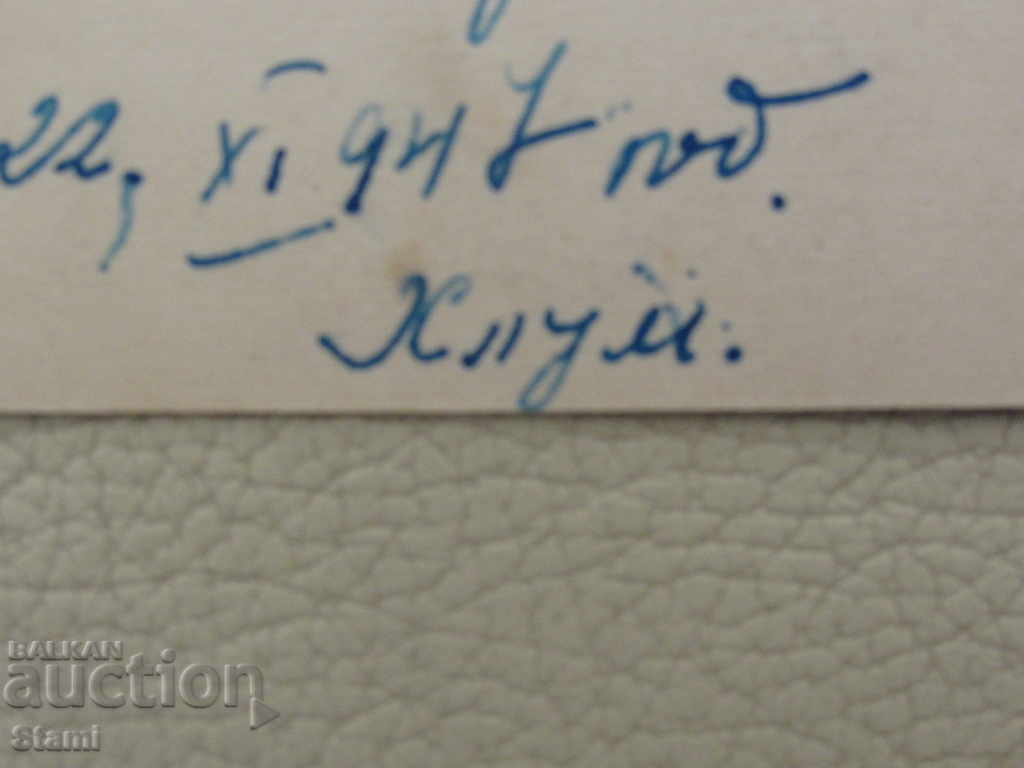 22, XI 947 год.
Клуж.
BALKAN
auction
Stami